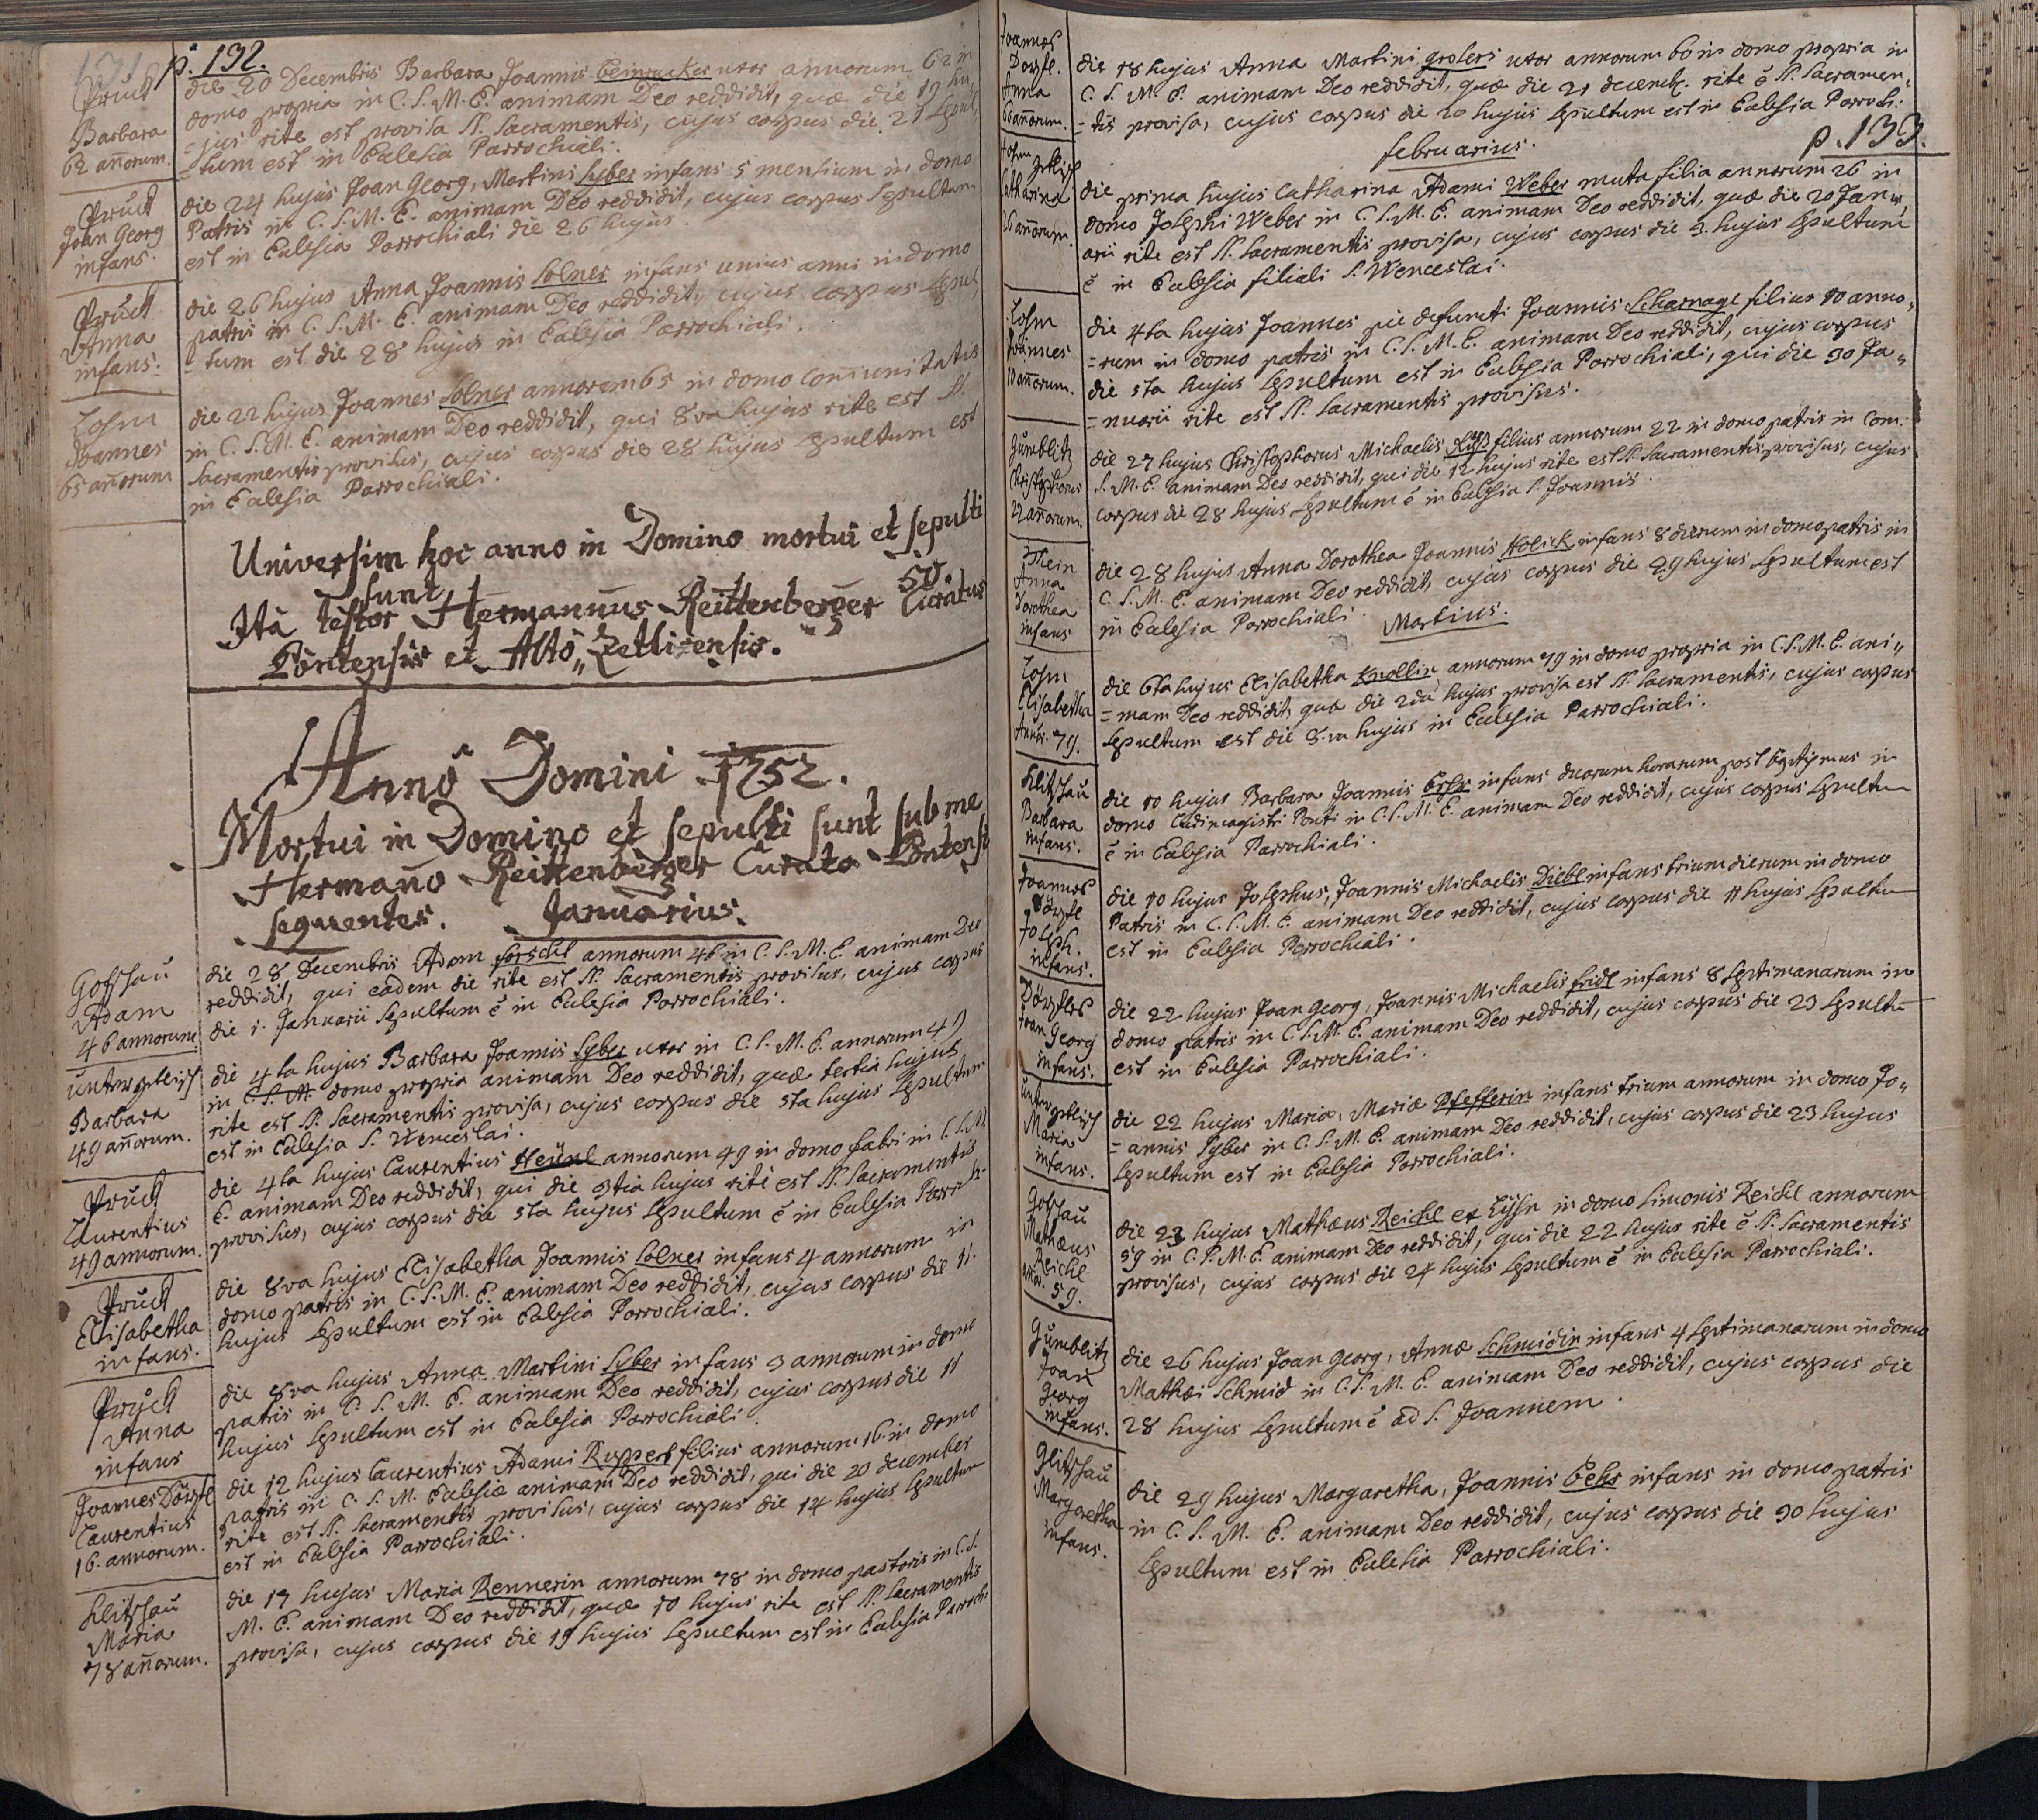 p. 132.
Pruck
Barbara
62 añorum.
die 20 Decembris Barbara Joannis uxor annorum 62 in
domo propria in C. S. M. E. animam Deo reddidit, quæ die 19 hu,
=jus rite est provisa SS. Sacramentis, cujus corpus die 21 sepul,
=tum est in Eclesia Parrochiali.
Pruck
Joan Georg
infans.
die 24 hujus Joan Georg, Martini Syber infans 5 mensium in domo
Patris in C. S. M. E. animam Deo reddidit, cujus corpus sepultum
est in Eclesia Parrochiali die 26 hujus
Pruck
Anna
infans.
die 26 hujus Anna Joannis Solner infans unius anni in domo
patris in C. S. M. E. animam Deo reddidit, cujus corpus sepul,
=tum est die 28 hujus in Eclesia Parrochiali.
Losm
Joannes
65 añorum
die 22 hujus Joannes Solner annorum 65 in domo Com̄unitatis
in C. S. M. E. animam Deo reddidit, qui 8va hujus rite est SS.
Sacramentis provisus, cujus corpus die 28 hujus sepultum est
in Eclesia Parrochiali.
Universim hoc anno in Domino mortui et sepulti
sunt 50.
Ità testor Hermannus Reittenberger Curatus
Pontensis et Alto,, Zetlisensis.
Anno Domini 1752.
Mortui in Domino et sepulti sunt sub me
Hermaño Reittenberger Curato Pontensi
sequentes. Januarius.
Gosshau
Adam
46 annorum
die 28 Decembris Adam forschl annorum 46 in C. S. M. E. animam Deo
reddidit, qui eadem die rite est SS. Sacramentis provisus, cujus corpus
die 1. Januarii sepultum ē in Eclesia Parrochiali.
Unterzetlisch
Barbara
49 añorum.
die 4ta hujus Barbara Joannis Syber uxor in C. S. M. E. annorum 49
in C. S. M. domo propria animam Deo reddidit, quæ tertia hujus
rite est SS. Sacramentis provisa, cujus corpus die 5ta hujus sepultum
est in Eclesia S. Wenceslai.
Pruck
Laurentius
49 annorum.
die 4ta hujus Laurentius Heünl annorum 49 in domo fabri in C. S. M.
E. animam Deo reddidit, qui die 3tia hujus rite est SS. Sacramentis
provisus, cujus corpus die 5ta hujus sepultum ē in Eclesia Parroch.
Pruck
Elisabetha
infans.
die 8va hujus Elisabetha Joannis Solner infans 4 annorum in
domo patris in C. S. M. E. animam Deo reddidit, cujus corpus die 11.
hujus sepultum est in Eclesia Parrochiali.
Pruck
Anna
infans
die 8va hujus Anna Martini Syber infans 3 annorum in domo
patris in C. S. M. E. animam Deo reddidit, cujus corpus die 11
hujus sepultum est in Eclesia Parrochiali.
Joannes Dörfl
Laurentius
16. annorum.
die 12 hujus Laurentius Adami Ruppert filius annorum 16 in domo
patris in C. S. M. Eclesiæ animam Deo reddidit, qui die 20 december
rite est SS. Sacramentis provisus, cujus corpus die 14 hujus sepultum
est in Eclesia Parrochiali.
Klitschau
Maria
78 añorum.
die 17 hujus Maria Rennerin annorum 78 in domo pastoris in C. S.
M. E. animam Deo reddidit, quæ 10 hujus rite est SS. Sacramentis
provisa, cujus corpus die 19 hujus sepultum est in Eclesia Parroch:
Joannes
Dorfl.
Anna
60 añorum.
die 18 hujus Anna Martini grosers uxor annorum 60 in domo propria in
C. S. M. E. animam Deo reddidit, quæ die 21 decemb. rite ē SS. Sacramen,
=tis provisa, cujus corpus die 20 hujus sepultum est in Eclesia Parroch:
februarius.
p. 133.
Catharina
26 añorum.
die prima hujus Catharina Adami Weber muta filia annorum 26 in
domo Josephi Weber in C. S. M. E. animam Deo reddidit, quæ die 20 Janu,
arii rite est SS. Sacramentis provisa, cujus corpus die 3. hujus sepultum
ē in Eclesia filiali S. Wenceslai.
Losm
Joannes
10 añorum.
die 4ta hujus Joannes pie defuncti Joannis Scharnagl filius 10 anno,
=rum in domo patris in C. S. M. E. animam Deo reddidit, cujus corpus
die 5ta hujus sepultum est in Eclesia Parrochiali, qui die 30 Ja,,
=nuarii rite est SS. Sacramentis provisus.
Gumblitz
Christophorus
22 añorum.
die 27 hujus Christophorus Michaelis filius annorum 22 in domo patris in Com.
S. M. E. animam Deo reddidit, qui die 12 hujus rite est SS. Sacramentis provisus, cujus
corpus die 28 hujus sepultum ē in Eclesia S. Joannis.
Anna
Dorothea
infans
die 28 hujus Anna Dorothea Joannis Holick infans 8 dierum in domo patris in
C. S. M. E. animam Deo reddidit, cujus corpus die 29 hujus sepultum est
in Eclesia Parrochiali.
Martius.
Losm
Elisabetha
Añor. 79.
die 6ta hujus Elisabetha Knollin annorum 79 in domo propria in C. S. M. E. ani,,
=mam Deo reddidit, quæ die 2da hujus provisa est SS. Sacramentis, cujus corpus
sepultum est die 8.va hujus in Eclesia Parrochiali.
Klitschau
Barbara
infans.
die 10 hujus Barbara Joannis infans duorum horarum post baptismus in
domo Ludimagistri Ponti in C. S. M. E. animam Deo reddidit, cujus corpus sepultu
ē in Eclesia Parrochiali.
Joannes
Dörfl
Joseph.
infans.
die 10 hujus Josephus, Joannis Michaelis Diebl infans trium dierum in domo
Patris in C. S. M. E. animam Deo reddidit, cujus corpus die 11 hujus sepultu
est in Eclesia Parrochiali.
Dörfles
Joan
Georg
infans.
die 22 hujus Joan Georg, Joannis Michaelis fridl infans 8 septimanarum in
domo patris in C. S. M. E. animam Deo reddidit, cujus corpus die 23 sepultū
est in Eclesia Parrochiali.
Unterzetlisch
Maria
infans.
die 22 hujus Maria, Mariæ Pfefferin infans trium annorum in domo Jo,,
=annis Syber in C. S. M. E. animam Deo reddidit, cujus corpus die 23 hujus
sepultum est in Eclesia Parrochiali.
Gosshau
Mathæus
Reichl
añor. 59.
die 23 hujus Mathæus Reichl ex in domo Simonis Reichl annorum
59 in C. S. M. E. animam Deo reddidit, qui die 22 hujus rite ē SS. Sacramentis
provisus, cujus corpus die 24 hujus sepultum ē in Eclesia Parrochiali.
Gumblitz
Joan
Georg
infans.
die 26 hujus Joan Georg, Annæ Schmidin infans 4 septimanarum in domo
Mathæi Schmid in C. S. M. E. animam Deo reddidit, cujus corpus die
28 hujus sepultum ē ad S. Joannem.
Glitschau
Margaretha
infans.
die 29 hujus Margaretha, Joannis infans in domo patris
in C. S. M. E. animam Deo reddidit, cujus corpus die 30 hujus
sepultum est in Eclesia Parrochiali.